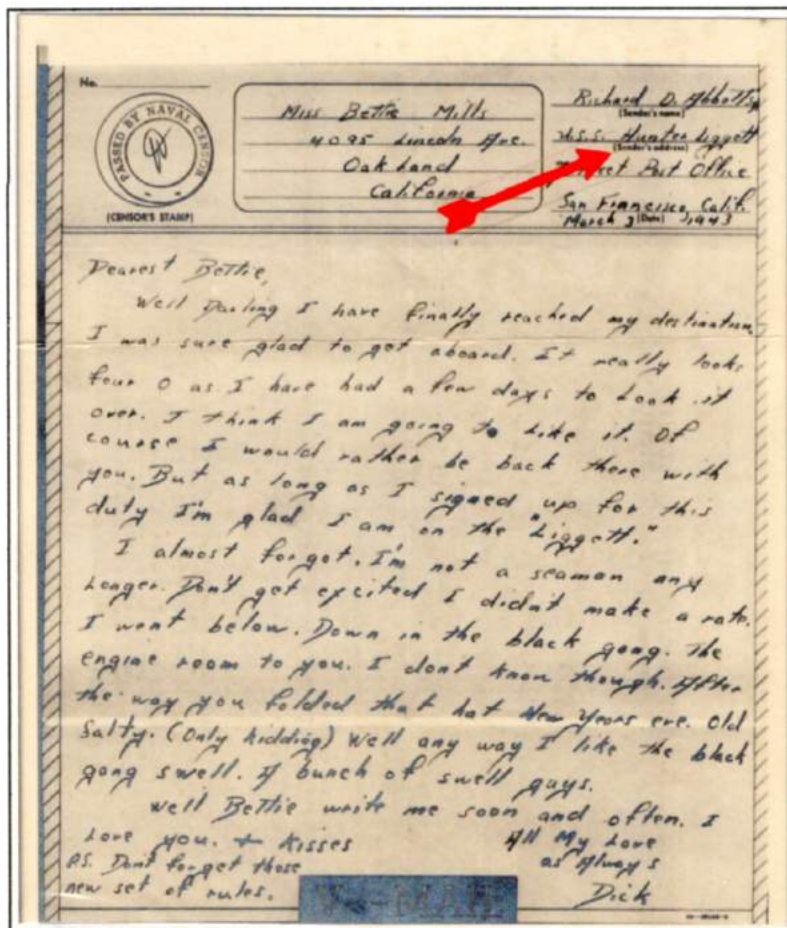 No.
PASSED BY NAVAL CENSOR
(CENSOR'S STAMP)
Miss Bettie Mills
4095 Lincoln Ave.
Oakland
California
Richard D. Abbotts
(Sender's name)
U.S.S. Hunter Liggett
(Sender's address)
Post Office
San Francisco, Calif.
March 3 (Date) 1943
Dearest Bettie,
Well Darling I have finally reached my destination.
I was sure glad to get aboard. It really looks
four O as I have had a few days to Look it
over. I think I am going to Like it. Of
course I would rather be back there with
you. But as long as I signed up for this
duty I'm glad I am on the "Liggett."
I almost forgot. I'm not a seaman any
Longer. Don't get excited I didn't make a rate.
I went below. Down in the black gang. The
engine room to you. I dont know though. After
the way you folded that hat New Years eve. Old
Salty. (Only kidding) Well any way I like the black
gang swell. A bunch of swell guys.
Well Bettie write me soon and often. I
Love you. + Kisses
All My Love
as Always
Dick
P.S. Dont forget those
new set of rules.
V--MAIL